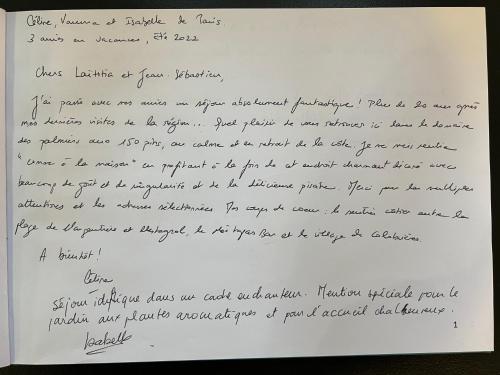 Céline, Vanina et Isabelle de Paris.
3 amies en vacances, Eté 2022
Chers Laëtitia et Jean-Sébastien,
J'ai passé avec nos amies un séjour absolument fantastique ! Plus de 20 ans après
mes dernières visites de la région... Quel plaisir de vous retrouver ici dans le domaine
des palmiers aux 150 pins, au calme et en retrait de la côte. Je me suis sentie
"comme à la maison" en profitant à la fois de cet endroit charmant décoré avec
beaucoup de goût et de singularité et de la délicieuse piscine. Merci pour les multiples
attentions et les adresses sélectionnées. Mes coups de coeur : le sentier côtier entre la
plage de l'Argentière et l'Estagnol, le Tapas Bar et le village de Collobrières.
A bientôt !
Céline
Séjour idyllique dans un cadre enchanteur. Mention spéciale pour le
jardin aux plantes aromatiques et par l'accueil chaleureux.
Isabelle
1